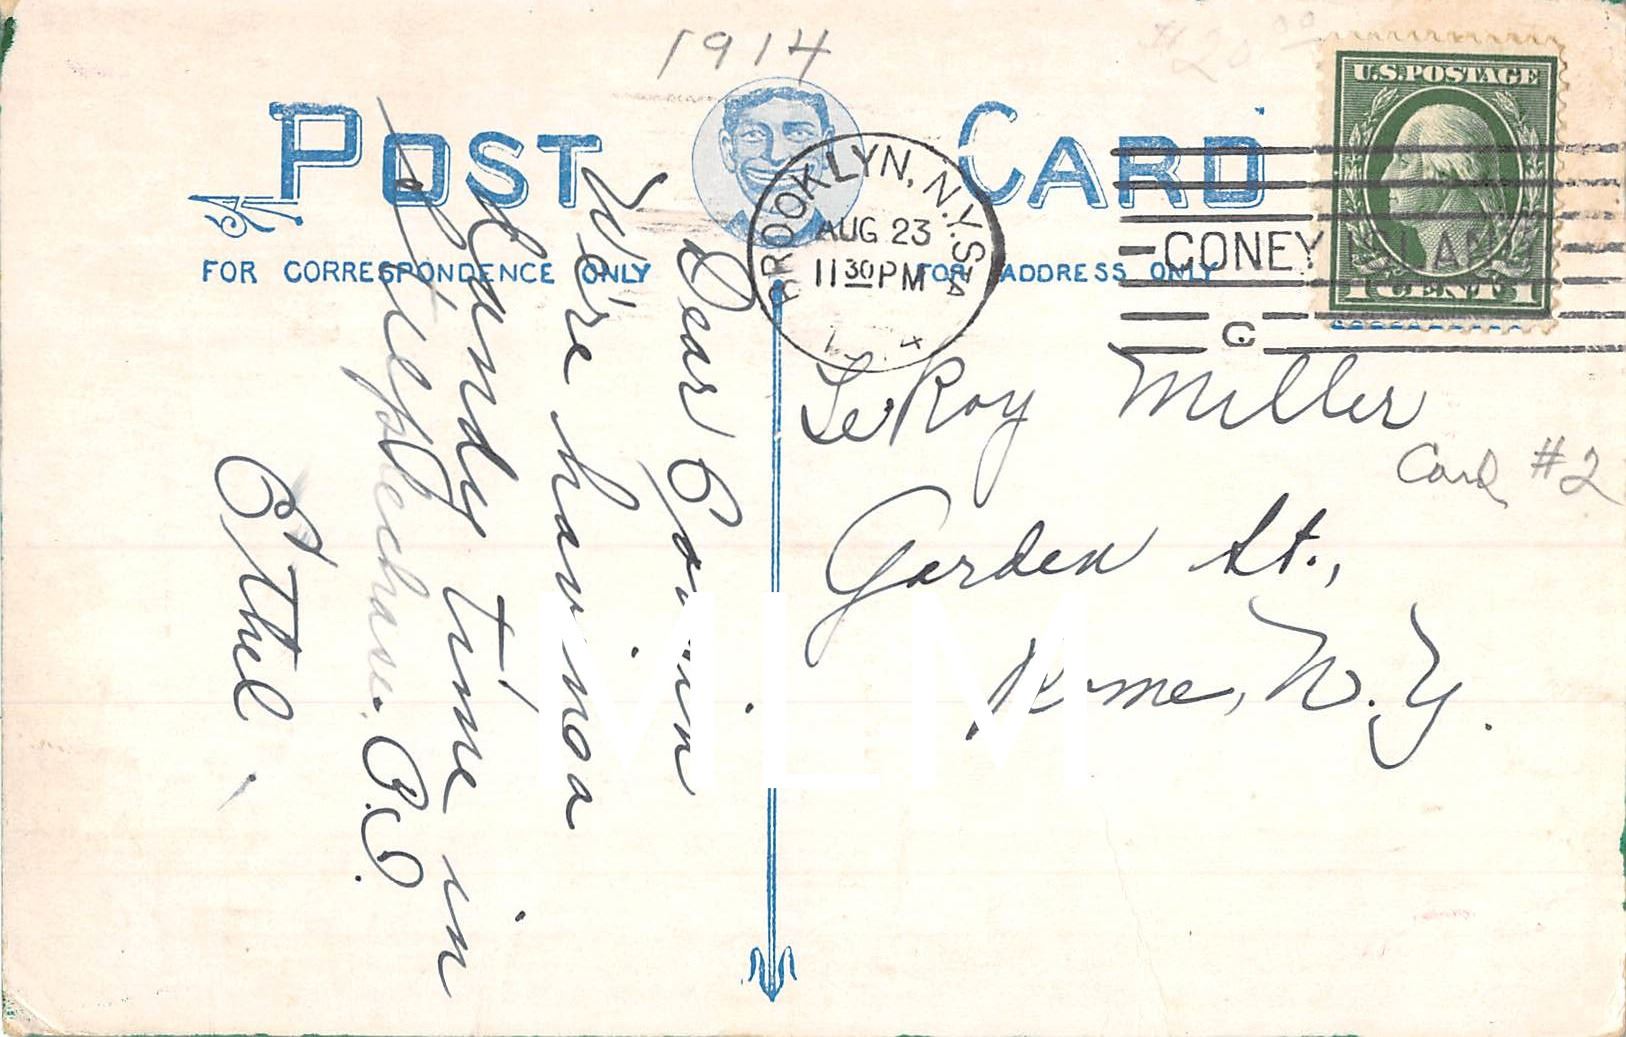 1914
POST CARD
FOR CORRESPONDENCE ONLY
FOR ADDRESS ONLY
BROOKLYN, N.Y. STA
AUG 23
11 30 PM
CONEY ISLAND
C
U.S. POSTAGE
1 CENT 1
Dear Cousin
We're having a
dandy time in
Steeplechase. P.O.
Ethel.
LeRoy Miller
Card #2
Garden St.,
Rome, N.Y.
MLM